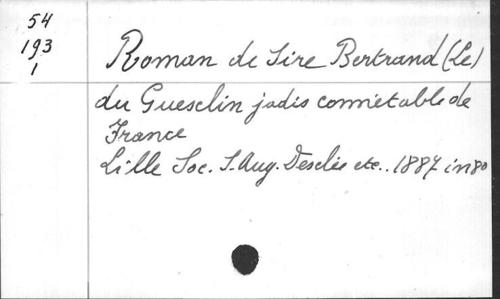 54
193
1
Roman de Sire Bertrand (Le)
du Guesclin jadis connétable de
France
Lille Soc. S. Aug. Desclée etc.. 1887 in 8o